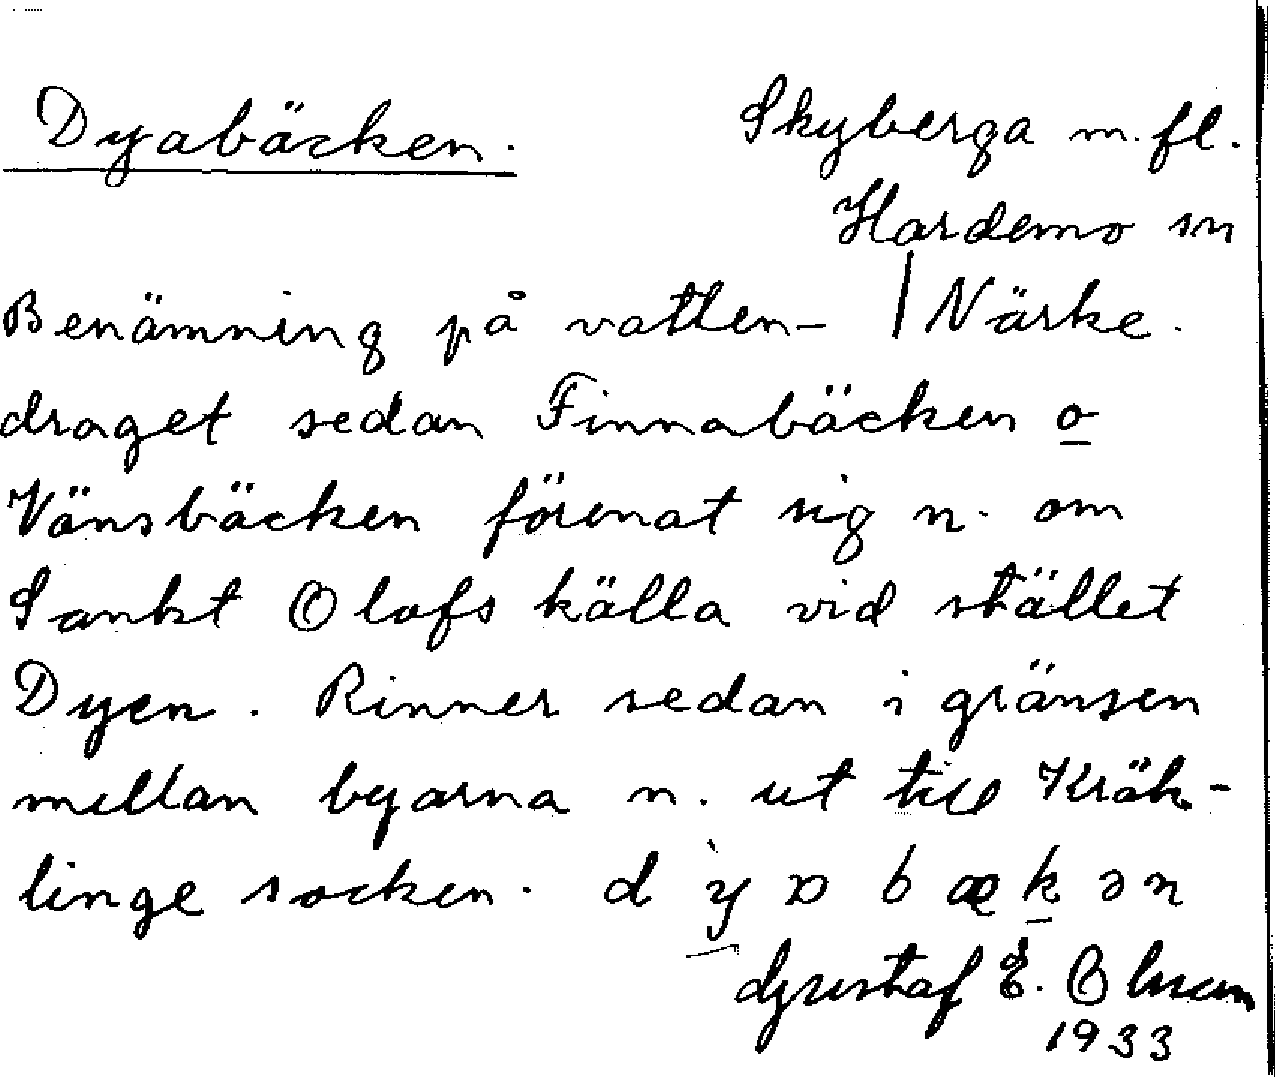 Dyabäcken. Skyberga m. fl.
Hardemo sn
Benämning på vatten- | Närke.
draget sedan Finnabäcken o
Vänsbäcken förenat sig n. om
Sankt Olofs källa vid stället
Dyen. Rinner sedan i gränsen
mellan byarna n. ut till Kräk-
linge socken.
Gustaf E. Olsson
1933